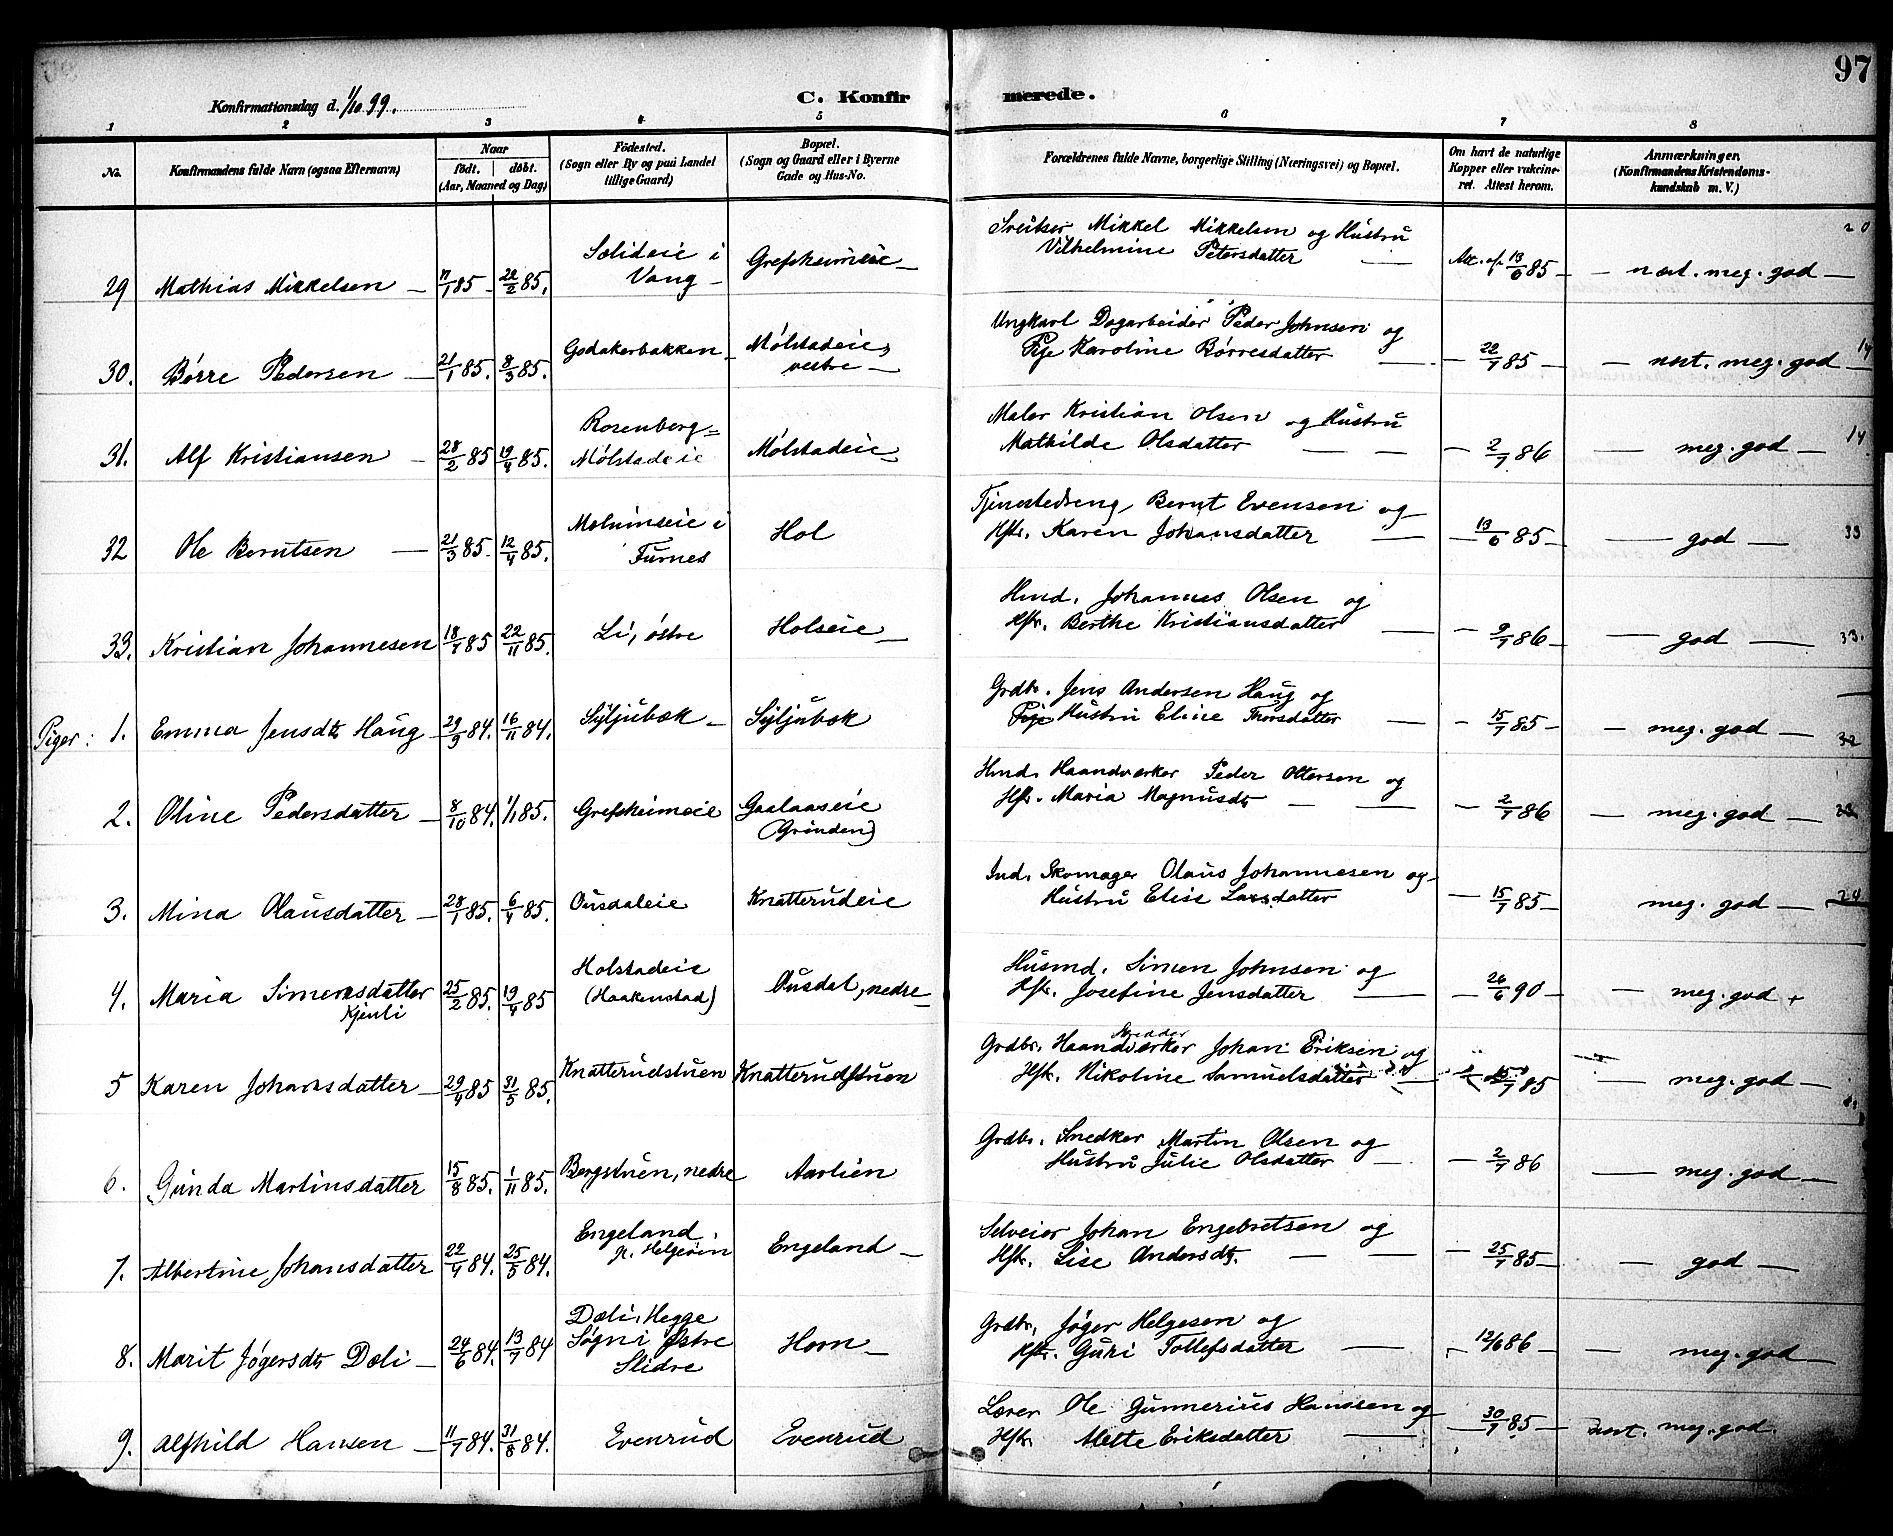 97
Konfirmationsdag d. 1/10 99.
C. Konfirmerede.
1 2 3 4 5 6 7 8
No.
Konfirmandens fulde Navn (ogsaa Efternavn)
Naar
født. | døbt.
(Aar, Maaned og Dag)
Fødested.
(Sogn eller By og paa Landet
tillige Gaard)
Bopæl.
(Sogn og Gaard eller i Byerne
Gade og Hus-No.
Forældrenes fulde Navne, borgerlige Stilling (Næringsvei) og Bopæl.
Om havt de naturlige
Kopper eller vakcine-
ret. Attest herom.
Anmærkninger.
(Konfirmandens Kristendoms-
kundskab m. V.)
29 Mathias Mikkelsen – 11/1 85 – 22/2 85. Sælideie i
Vang – Grefsheimeie – Sveitser Mikkel Mikkelsen og Hustru
Vilhelmine Petersdatter — Att. af 13/6 85 – – næst. meg. god — 20
30. Børre Pedersen — 21/1 85. 8/3 85. Godakerbakken – Mølstadeie,
vestre – Ungkarl Dagarbeider Peder Johnsen og
Pige Karoline Børresdatter — – 22/7 85 – – næst. meg. god – 14
31. Alf Kristiansen – 28/2 85 19/4 85. Rosenberg=
Mølstadeie Mølstadeie – Maler Kristian Olsen og Hustru
Mathilde Olsdatter — — – 2/7 86 — meg. god – 14
32 Ole Berntsen — 21/3 85 – 12/4 85. Melumseie i
Furnes Hol Tjenestedreng Bernt Evensen og
Hstr. Karen Johansdatter — – 13/6 85 – — god — 33
33. Kristian Johannesen 18/7 85 22/11 85. Li, østre Holseie – Hmd. Johannes Olsen og
Hstr. Berthe Kristiansdatter — – 9/7 86 – — god — 33.
Piger: 1. Emma Jensdtr Haug – 29/9 84. 16/11 84. Syljubæk – Syljubæk Grdbr. Jens Andersen Haug og
Pige Hustru Eline Thorsdatter — – 15/7 85 – – meg. god – 32
2. Oline Pedersdatter – 8/10 84. 1/1 85. Grefsheimeie Gaalaaseie
(Grinden) Hmd. Haandværker Peder Ottersen og
Hstr. Maria Magnusdtr — — – 2/7 86 – meg. god –
3. Mina Olausdatter – 28/1 85. 6/4 85. Ousdaleie Knatterudeie Ind. Skomager Olaus Johannesen og
Hustru Elise Larsdatter – 15/7 85 – meg. god – 24
4. Maria Simensdatter
Kjenli 25/2 85. 19/4 85 Holstadeie
(Haakenstad) Ousdal, nedre – Husmd. Simen Johnsen og
Hstr. Josefine Jensdatter — – 26/6 90 – – meg. god +
5 Karen Johansdatter – 29/4 85 31/5 85. Knatterudstuen Knatterudstuen Grdbr. Haandværker Skrædder Johan Eriksen og
Hstr. Nikoline Samuelsdatter – 15/7 85 – meg. god –
6. Gunda Martinsdatter 15/8 85. 1/11 85. Bergstuen, nedre Aarlien Grdbr. Snedker Martin Olsen og
Hustru Julie Olsdatter – – 2/7 86 — meg. god –
7. Albertine Johansdatter 22/4 84. 25/5 84. Engeland,
p. Helgøen Engeland – Selveier Johan Engebretsen og
Hstr. Lise Andersdtr. — — – 25/7 85 – – god –
8. Marit Jøgersdtr Dæli – 24/6 84. 13/7 84 Dæli, Hegge
Sogn i Østre
Slidre Horn – Grdbr. Jøger Helgesen og
Hstr. Guri Tollefsdatter — – 12/6 86 – – meg. god –
9. Alfhild Hansen – 11/7 84. 31/8 84. Evenrud Evenrud Lærer Ole Gunnerius Hanssen og
Hstr. Mette Eriksdatter — – 30/7 85 – næst. meg. god.